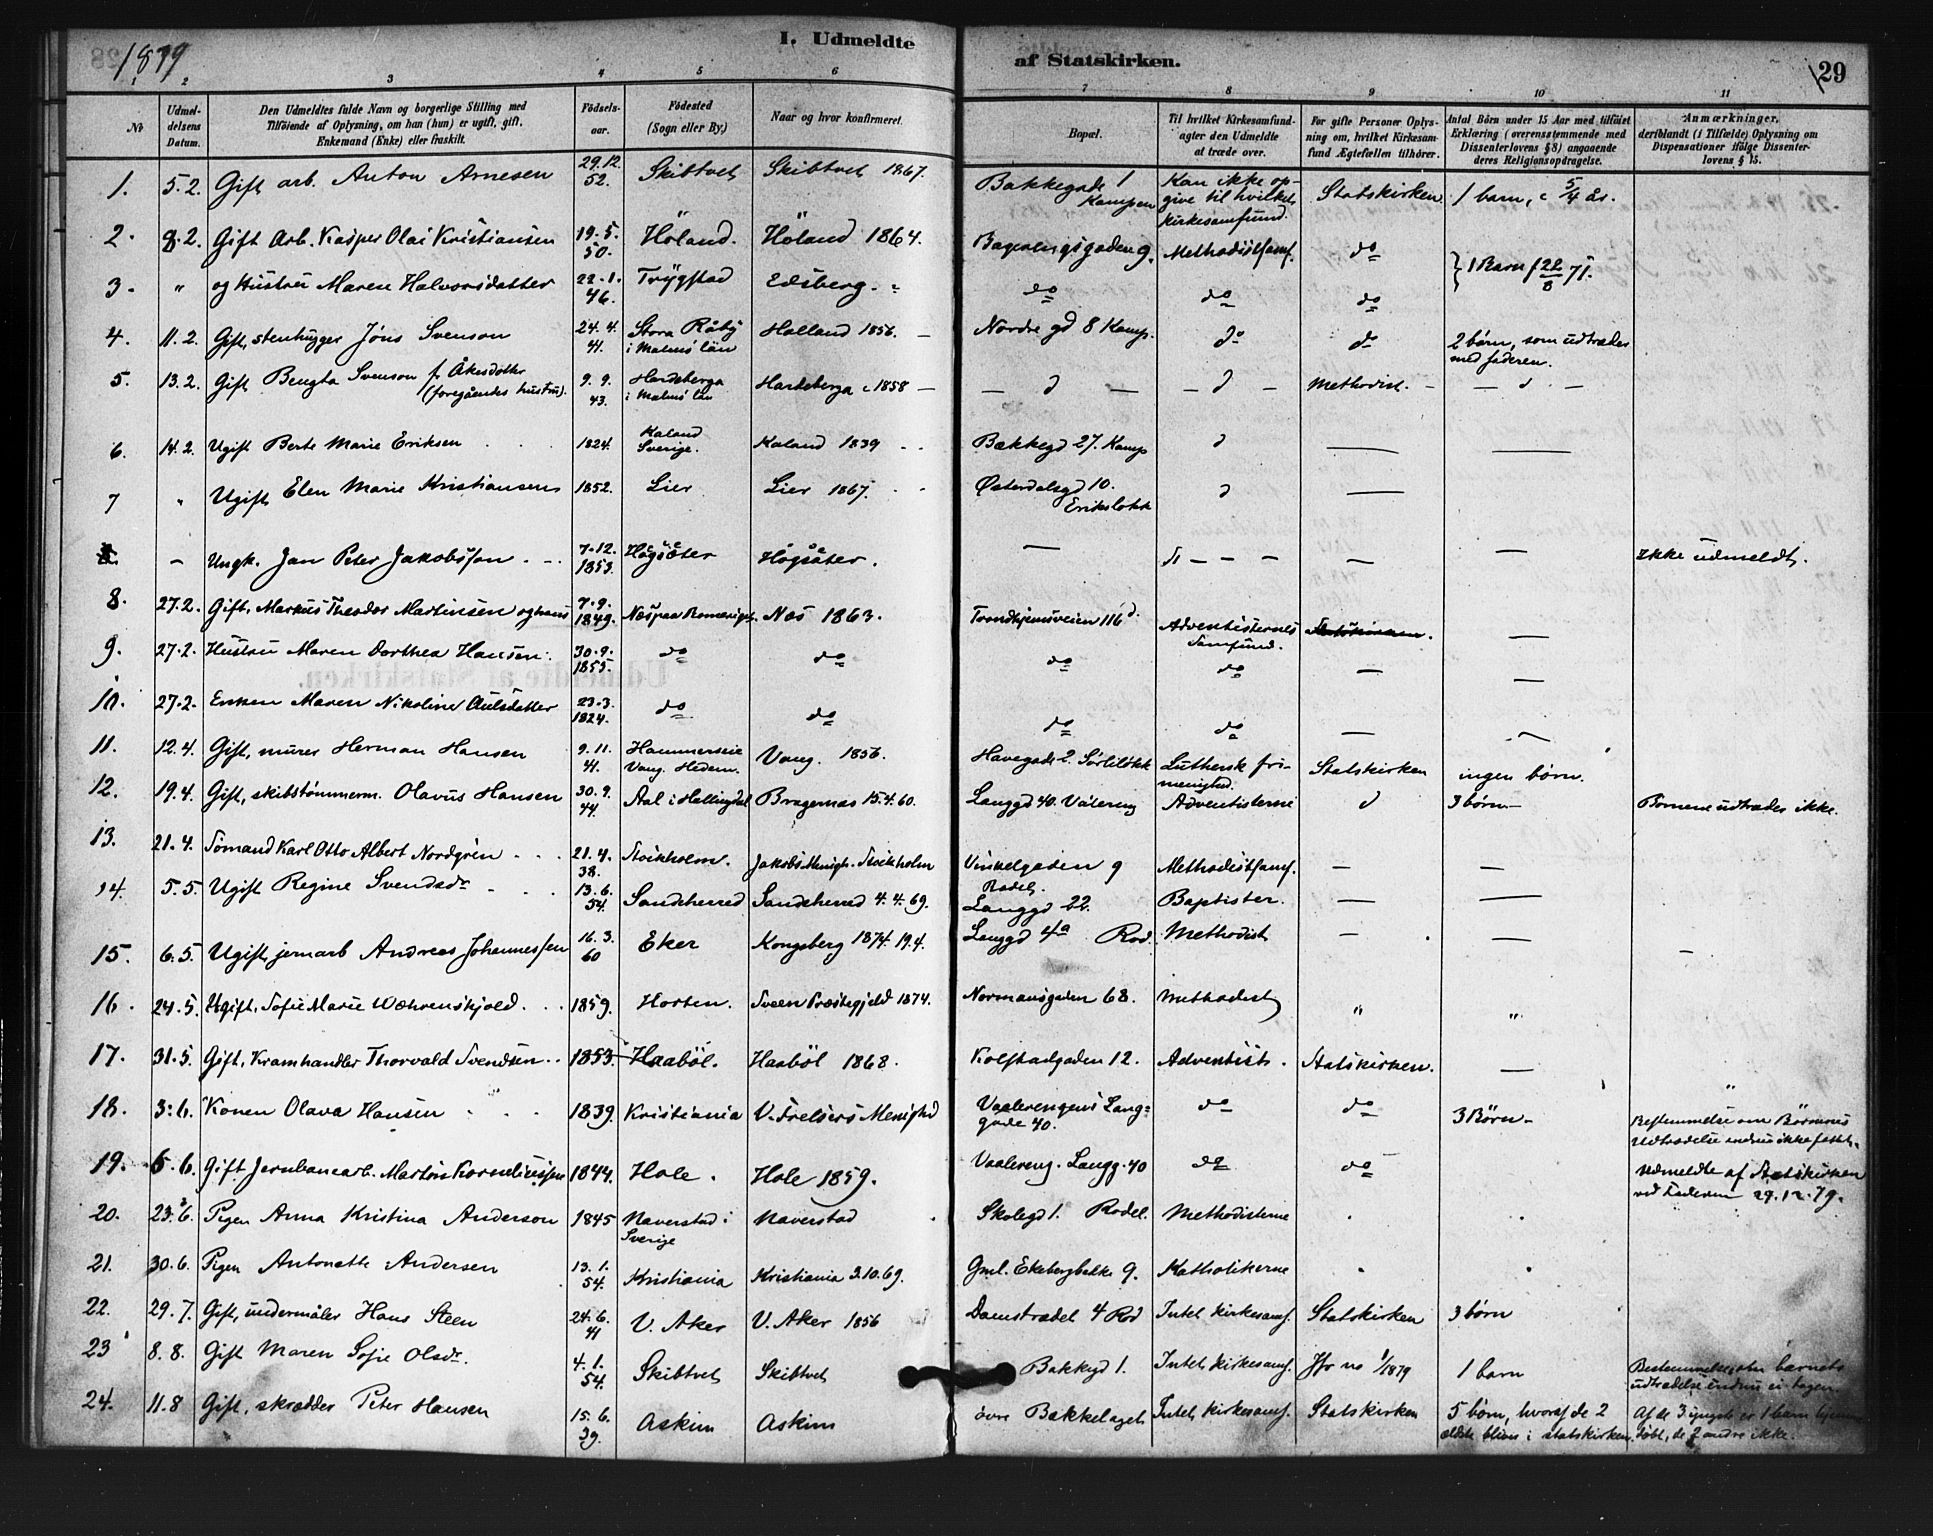 1879
I. Udmeldte
af Statskirken.
29
1 2 3 4 5 6 7 8 9 10 11
No
Udmeldelsens Datum.
Den Udmeldtes fulde Navn og borgerlige Stilling med
Tilføiende af Oplysning, om han (hun) er ugift, gift,
Enkemand (Enke) eller fraskilt.
Fødselsaar.
Fødested
(Sogn eller By.)
Naar og hvor konfirmeret.
Bopæl.
Til hvilket Kirkesamfund
agter den Udmeldte
at træde over.
For gifte Personer Oplysning om, hvilket Kirkesamfund Ægtefællen tilhører.
Antal Børn under 15 Aar med tilføiet
Erklæring (overensstemmende med
Dissenterlovens § 8) angaaende
deres Religionsopdragelse.
Anmærkninger,
deriblandt (i Tilfælde) Oplysning om
Dispensationer ifølge Dissenterlovens § 15.
1. 5.2. Gift arb. Anton Arnesen 29.12. 52. Skibtvet Skibtvet 1867. Bakkegade 1 Kampen Kan ikke opgive til hvilket kirkesamfund. Statskirken 1 barn, c 5/4 år.
2. 8.2. Gift Arb. Kasper Olai Kristiansen 19.5. 50. Höland. Höland 1864. 9. Methodistsamf. do } 1 Barn f 22/8 71.
3. " og Hustru Maren Halvorsdatter 22.1. 46. Trygstad Edsberg. " do do do
4. 11.2. Gift, stenhugger Jöns Svenson 24.4. 41. Stora Råby i Malmö län Holland 1856. — Nordre gd 8 Kamp. do do 2 børn, som udtrædes med faderen.
5. 13.2. Gift Bengta Svenson f. Åkesdotter (foregåendes hustru). 9.9. 43. Hardeberga i Malmö län Hardeberga c 1858 — — d — — d — Methodist. — — d —
6. 14.2. Ugift Berte Marie Eriksen 1824. Kaland Sverige. Kaland 1839 Bækkegd 27. Kamp d — —
7 " Ugift Elen Marie Kristiansen 1852. Lier Lier 1867. Østerdalsgd 10. Erikslökk d —
— Ungk. Jan Peter Jakobsson 7.12. 1853. Högsäter Högsäter. — — — — — Ikke udmeldt.
8. 27.2. Gift, Markus Theodor Martinsen og hans 7.9. 1849. Næs paa Romerige. Næs 1863. Trondhjemsveien 116 d. Adventisternes Samfund. Statskirken. —
9. 27.2. Hustru Maren Dorthea Hansen. 30.9. 1855. do do do do — —
10. 27.2. Enken Maren Nikoline Aulsdatter 23.3. 1824. do do do do — —
11. 12.4. Gift, murer Herman Hansen 9.11. 41. Hammerseie Vang. Hedem. Vang. 1856. Havegade 2. Sørliløkk Luthersk frimenighed. Statskirken ingen børn.
12. 19.4. Gift, skibstømmerm. Olavus Hansen 30.9. 44. Aal i Hallingdal Bragernæs 15.4.60. Langgd 40. Vålereng Adventisterne d 3 børn — Børnene udtræder ikke.
13. 21.4. Sömand Karl Otto Albert Nordgrén 21.4. 38. Stockholm. Jakobs Menigh. Stockholm Vinkelgaden 9 Rodel. Methodistsamf. — —
14. 5.5. Ugift Regine Svendsdr 13.6. 54. Sandeherred Sandeherred 4.4.69. Langgd 22. Baptister. — —
15. 6.5. Ugift, jernarb Andreas Johannessen 16.3. 60 Eker Kongsberg 1874. 19.4. Langgd 4a Rod. Methodist — — —
16. 24.5. Ugift. Sofie Marie Wæhrenskjold. 1859. Horten. Sveen Præstegjeld 1874. Normansgaden 68. Methodist " "
17. 31.5. Gift, Kramhandler Thorvald Svendsen 1853. Haabøl. Haabøl 1868. Kolstadgaden 12. Adventist. Statskirken. — "
18. 3.6. Konen Olava Hansen 1839. Kristiania V. Frelsers Menighed Vaalerengens Langgade 40. do do 3 Børn — Bestemmelse om Børnenes Udtrædelse endnu ikke fattet.
19. 5.6. Gift Jernbanearb. Martin Korneliussen 1844. Hole. Hole 1859. Vaalereng. Langg. 40 do do Udmeldte af Statskirken ved Faderen 29.12.79.
20. 23.6. Pigen Anna Kristina Anderson 1845 Naverstad i Sverige Naverstad Skolegd 1. Rodel. Methodisterne
21. 30.6. Pigen Antonette Andersen 13.1. 54. Kristiania Kristiania 3.10.69. Gml. Ekebergbakke 9. Katholikerne
22. 29.7. Gift, undermåler Hans Steen 24.6. 41 V. Aker V. Aker 1856 Damstrædet 4 Rod Intet kirkesamf. Statskirken 3 børn
23 8.8. Gift Maren Sofie Olsdr. 4.1. 54. Skibtvet Skibtvet Bakkegd 1. Intet kirkesamf. Jfr no 1/1879 1 barn Bestemmelse om barnets udtrædelse endnu ei tagen.
24. 11.8 Gift, skrædder Peter Hansen 15.6. 39. Askim Askim övre Bakkelaget Intet kirkesamf. Statskirken 5 børn, hvoraf de 2 ældste bliver i statskirken. Af de 3 yngste er 1 barn hjemmedøbt, de 2 andre ikke.